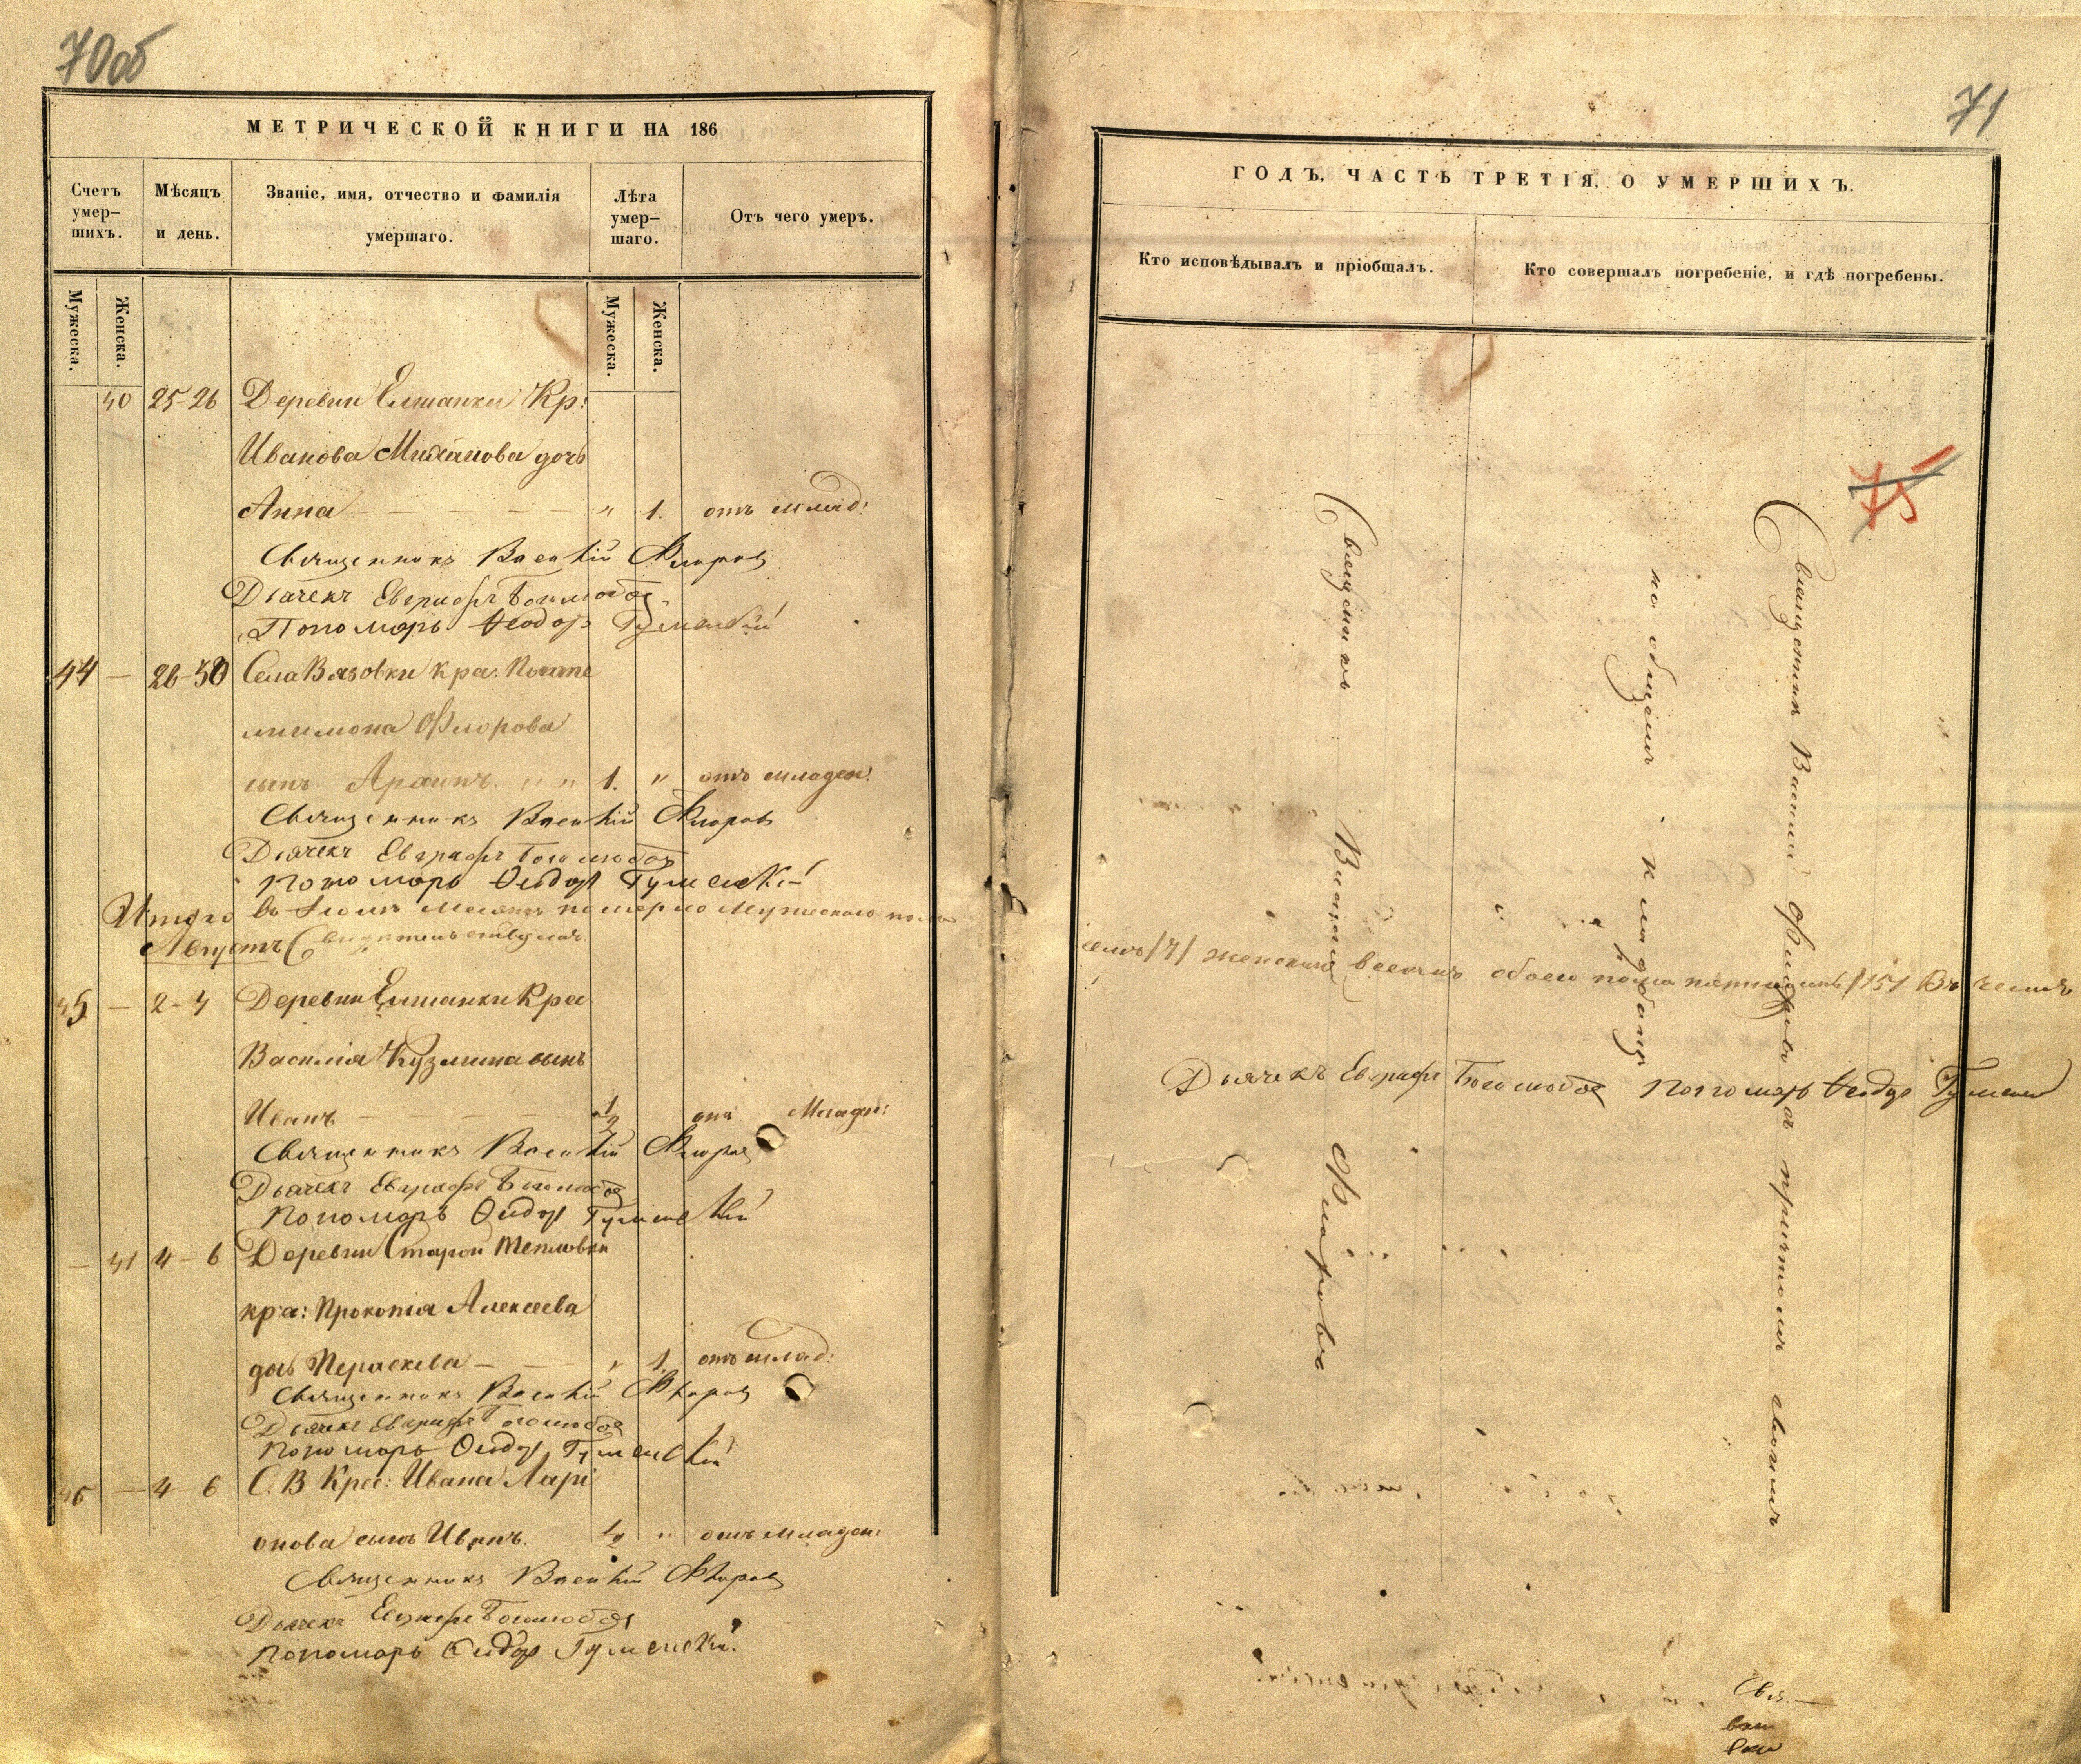 70об
МЕТРИЧЕСКОЙ КНИГИ НА 186
Счетъ умер-шихъ.
Мѣсяцъ и день.
Званіе, имя, отчество и фамилія умершаго.
Лѣта умер-шаго.
Отъ чего умеръ.
Мужеска.
Женска.
Мужеска.
Женска.
40 25-26 Деревни Елшанки Кр:
Иванова Михайлова дочь
Анна — — — — — " 1. отъ млад:
Священникъ Василій Флоровъ
Дьячекъ Евграфъ Боголюбов
Пономарь Феодоръ Гуменскій
44 — 26-30 Села Вязовки кре: Панте
лиимона Флорова
сынъ " " 1. " отъ младен:
Священникъ Василій Флоровъ
Дьячекъ Евграфъ Боголюбовъ
Пономарь Феодоръ Гуменскій
Итого въ Іюлѣ месяцѣ померло мужескаго пола
Августъ Свидетельствуемъ
45 — 2-4 Деревни Елшанки Кре
Василія Кузмина сынъ
Иванъ — — — — 1/2 отъ Младен:
Священникъ Василій Флоровъ
Дьячекъ Евграфъ Боголюбов
Пономарь Феодоръ Гуменскій
— 41 4-6 Деревни Старой Тепловки
кре: Прокопія Алексеева
дочь Пераскева — — " 1. отъ млад:
Священникъ Василій Флоровъ
Дьячекъ Евграфъ Боголюбов
Пономарь Феодоръ Гуменскій
46 — 4-6 С. В. Кре: Ивана Ларі
онова сынъ Иванъ. 1/2 " отъ младен:
Священникъ Василій Флоровъ
Дьячекъ Евграфъ Боголюбов
Пономарь Феодоръ Гуменскій.
71
ГОДЪ, ЧАСТЬ ТРЕТІЯ, О УМЕРШИХЪ.
Кто исповѣдывалъ и пріобщалъ.
Кто совершалъ погребеніе, и гдѣ погребены.
75
Священникъ Василій Флоровъ
на общемъ кладбищѣ
Священникъ Василій Флоровъ съ причтомъ своимъ
женскаго всехъ обоего пола 15 Въ чемъ
Дьячекъ Евграфъ Боголюбов Пономарь Феодоръ Гуменск
Свя. —